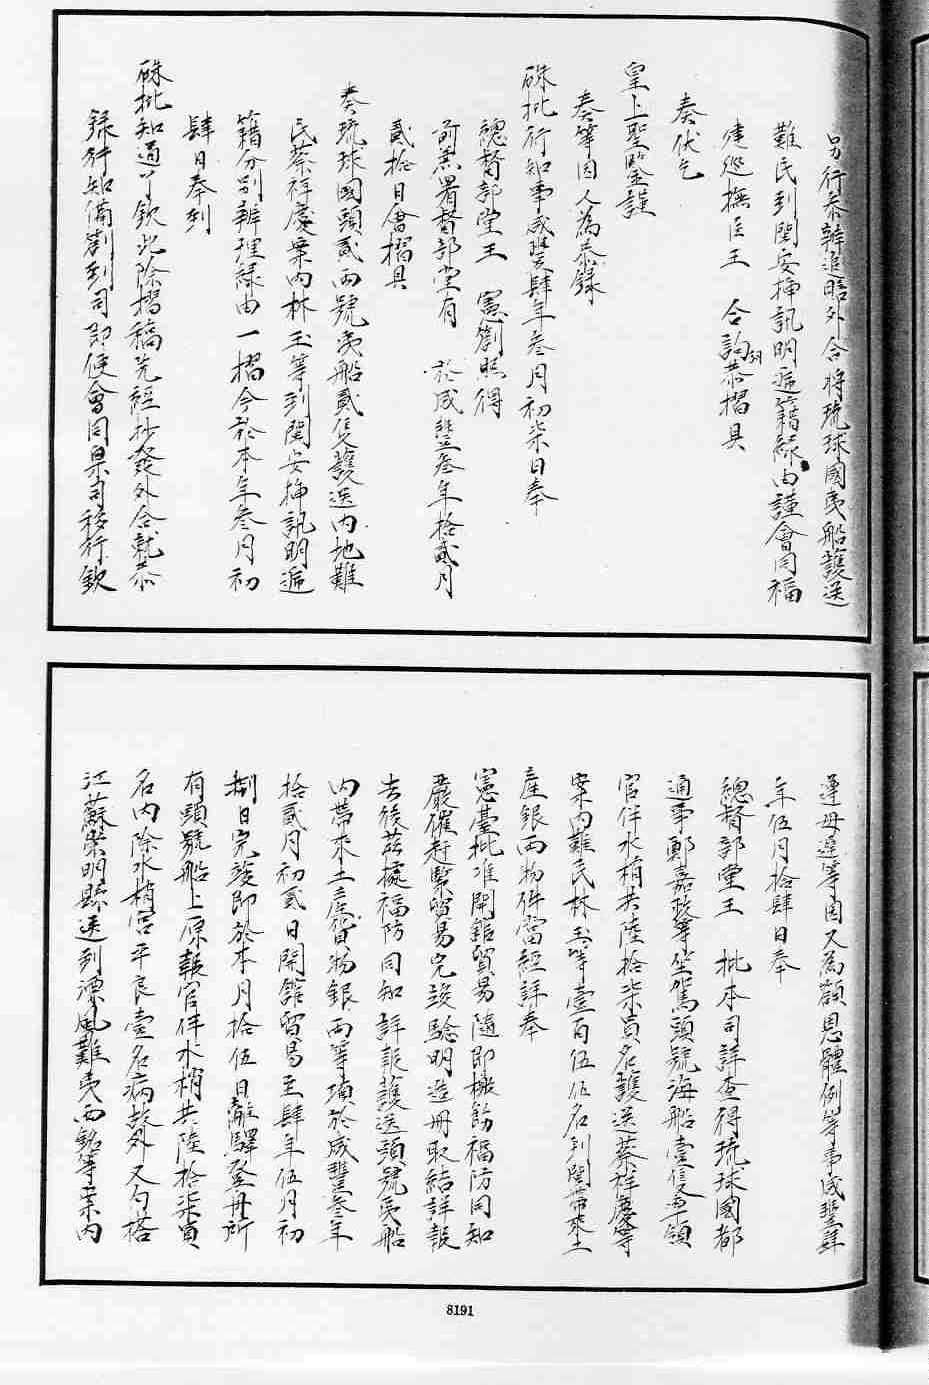 另行恭辦進晤外合將琉球國夷船護送
難民到閩安插訊明遞籍緣由謹會同福
建巡撫臣王 合詞恭摺具
奏伏乞
皇上聖鑒謹
奏等因人為恭錄
硃批行知事咸豐肆年叁月初柒日奉
總督部堂王 憲劄照得
前兼署督部堂有 於咸豐叁年拾貳月
貳拾日會摺具
奏琉球國頭貳兩號夷船貳隻護送內地難
民蔡祥慶案內林玉等到閩安插訊明遞
籍分別辦理緣由一摺今於本年叁月初
肆日奉到
硃批知道了欽此除摺稿先經抄發外合就恭
錄行知備劄到司即便會同臬司移行欽
遵毋違等因又為籲恩體例等事咸豐肆
年伍月拾肆日奉
總督部堂王 批本司詳查得琉球國都
通事鄭嘉政等坐駕頭號海船壹隻帶領
官伴水梢共陸拾柒員名護送蔡祥慶等
案內難民林玉等壹百伍伍名到閩帶來土
產銀兩物件當經詳奉
憲臺批准開館貿易隨即檄飭福防同知
嚴催赶緊貿易完竣驗明造冊取結詳報
去後茲據福防同知詳報護送頭號夷船
內帶來土產貨物銀兩等項於咸豐叁年
拾貳月初貳日開館貿易至肆年伍月初
捌日完竣即於本月拾伍日離驛登舟所
有頭號船上原報官伴水梢共陸拾柒員
名內除水梢宮平良壹名病故外又勻搭
江蘇崇明縣送到漂風難夷西銘等案內
8191